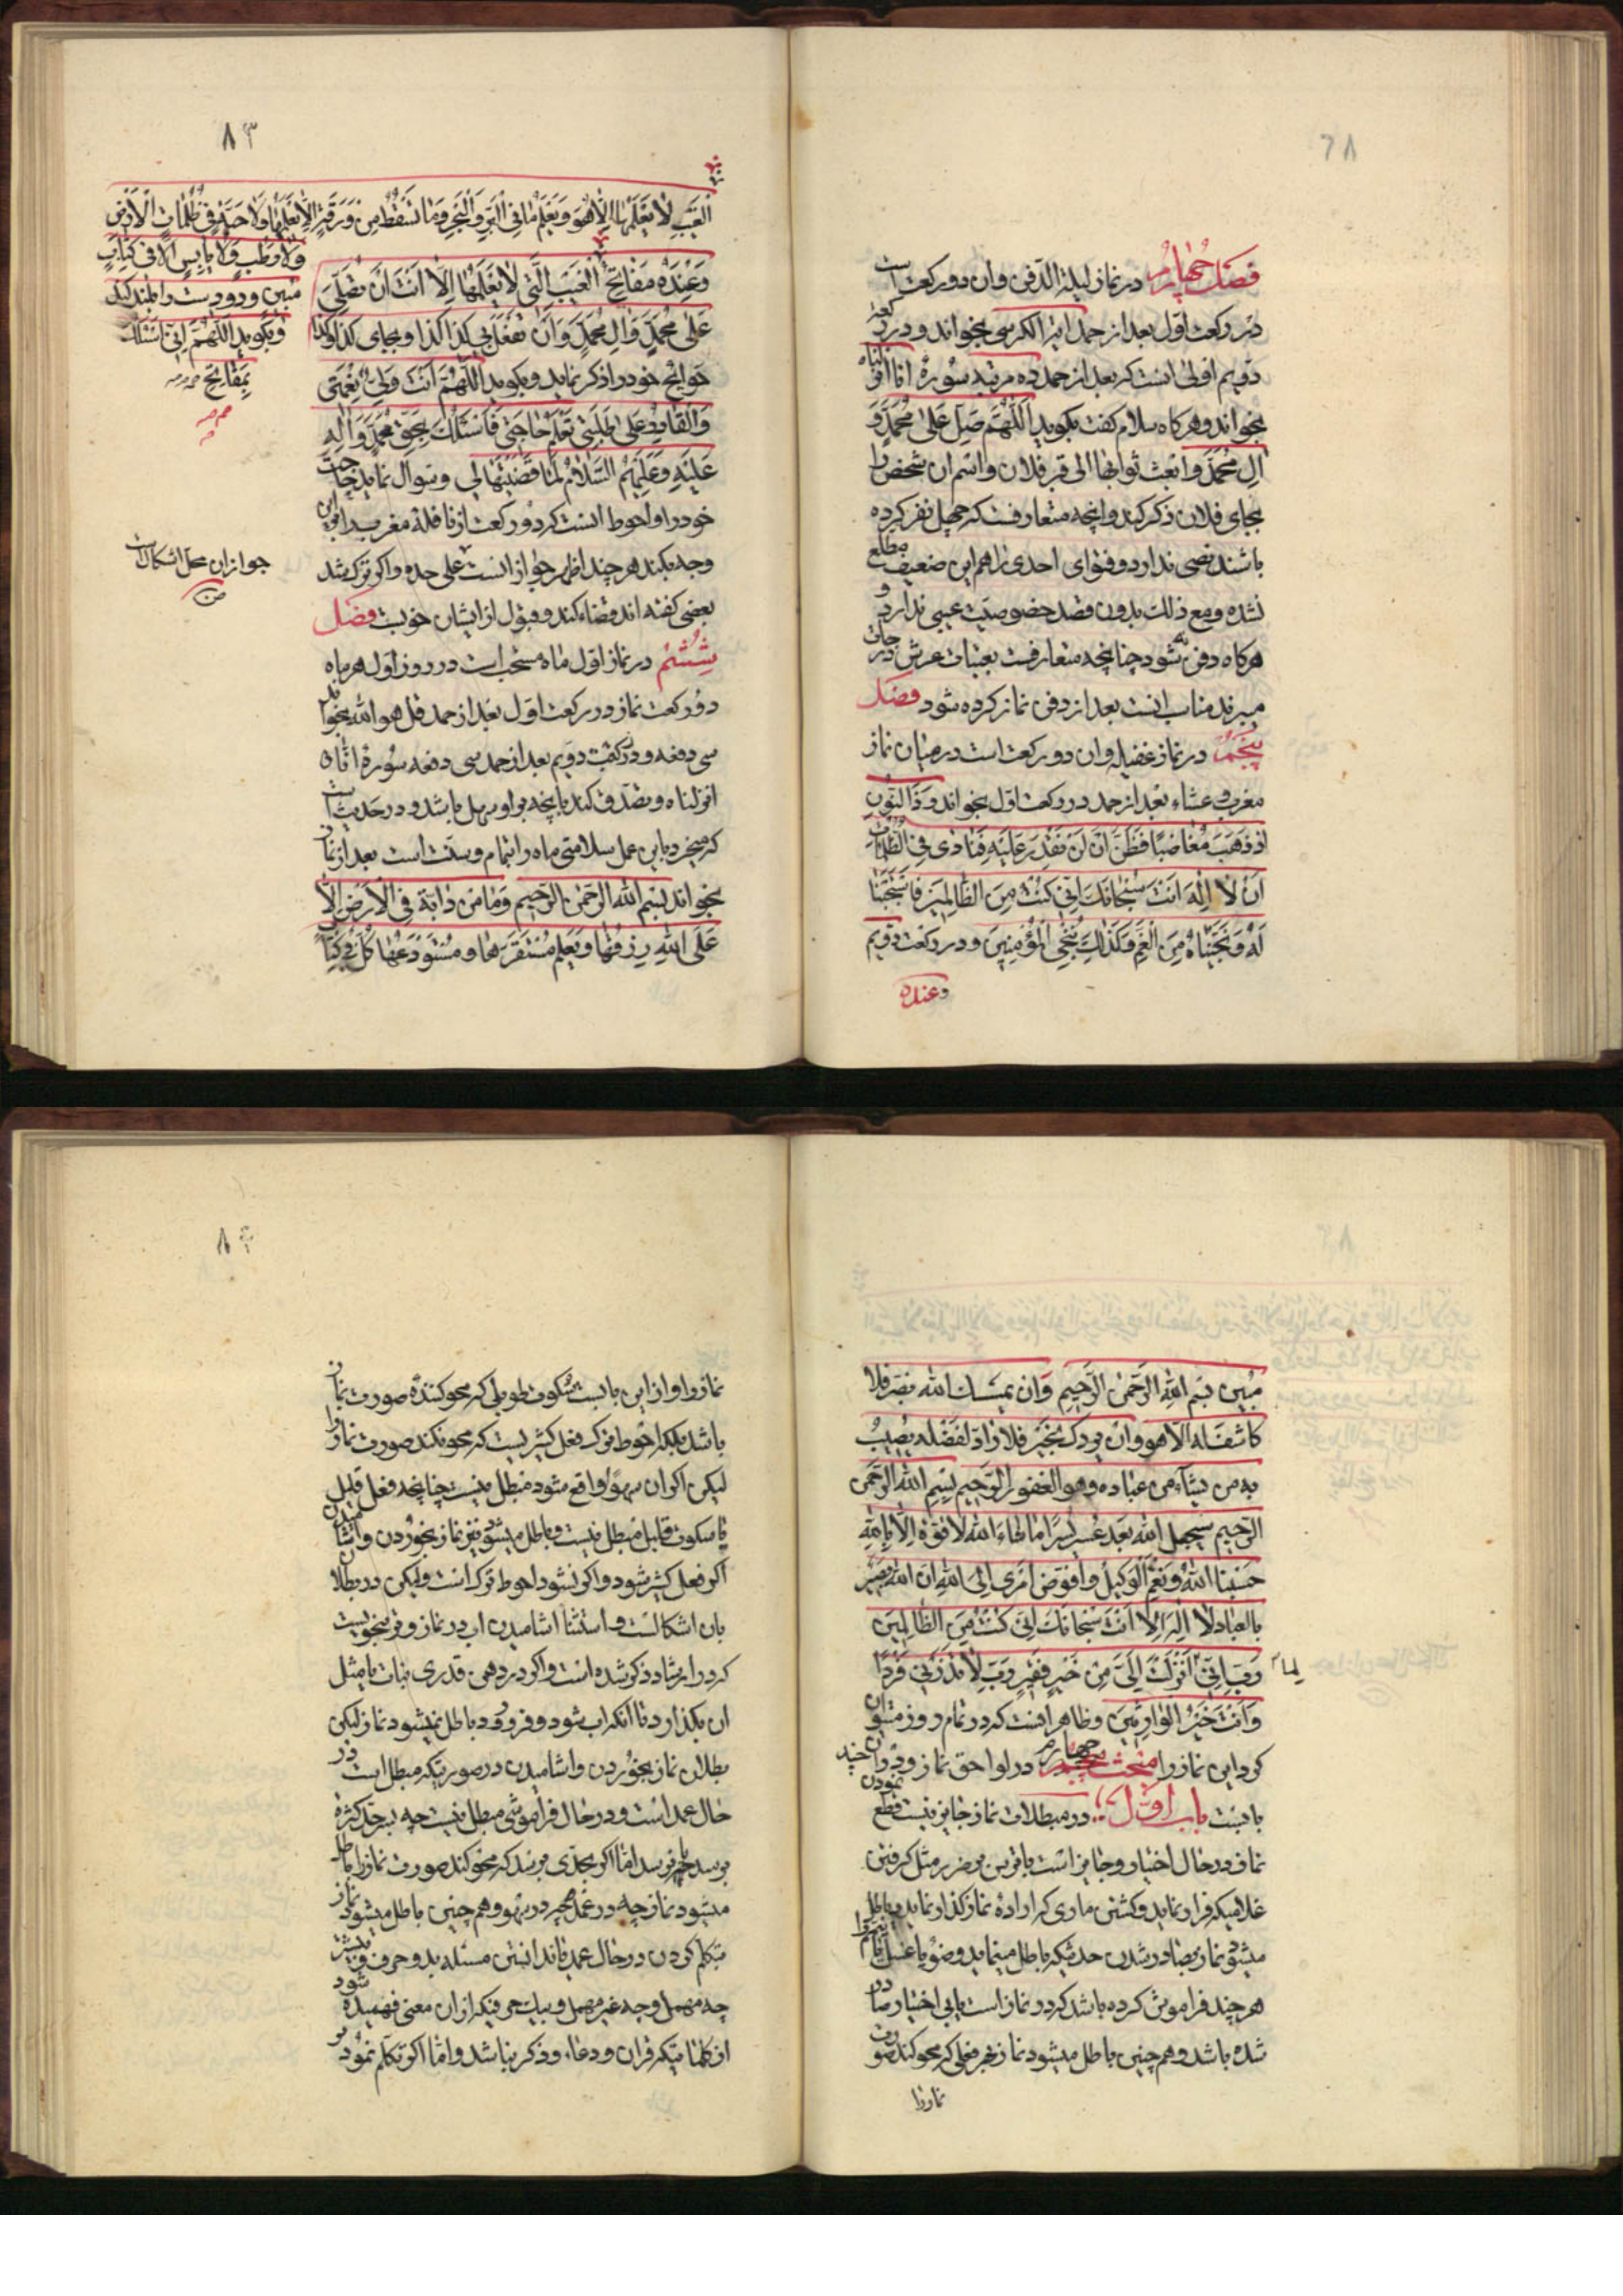 فصل چهارم در نماز لیلة الدفن وان دو رکعت است
در رکعت اول بعد از حمد ایة الکرسی بخواند و در رکعة
دویم اولی انست که بعد از حمد ده مرتبه سورهٔ انا انزلناه
بخواند و هرکاه سلام کفت بکوید اَللّٰهُمَّ صَلِّ عَلیٰ مُحَمَّدٍ وَ
اٰلِ مُحَمَّدٍ وابعث ثوابها الی قبر فلان و اسم ان شخص را
بجای فلان ذکر کند وانچه متعارفست که چهل نفر کرده
باشند نصی ندارد و فتوای احدی را هم این ضعیف مطلع
نشده و مع ذلک بدون قصد خصوصیت عیبی ندارد و
هرکاه دفن نشود چنانچه متعارفست بعتبات عرش درجات
میبرند مناسب انست بعد از دفن نماز کرده شود فصل
پنجم در نماز غفیله وان دو رکعت است در میان نماز
مغرب و عشاء بعد از حمد در رکعت اول بخواند وَذَا النُّونِ
اِذ ذَهَبَ مُغاضِبًا فَظَنَّ اَنْ لَنْ نَقْدِرَ عَلَیْهِ فَنادیٰ فِی الظُّلُماتِ
اَنْ لٰا اِلٰهَ اِلّٰا اَنْتَ سُبْحانَكَ اِنّی كُنْتُ مِنَ الظّالِمینَ فَاسْتَجَبْنا
لَهُ وَنَجَّیْناهُ مِنَ الْغَمِّ وَكَذٰلِكَ نُنْجِی الْمُؤْمِنینَ و در رکعت دویم
وعنده
۸۳
الْغَیْبِ لٰا یَعْلَمُها اِلّٰا هُوَ وَیَعْلَمُ مٰا فِی الْبَرِّ وَالْبَحْرِ وَمٰا تَسْقُطُ مِنْ وَرَقَةٍ اِلّٰا یَعْلَمُها وَلٰا حَبَّةٍ فی ظُلُماتِ الْاَرْضِ
وَلٰا رَطْبٍ وَلٰا یٰابِسٍ اِلّٰا فی كِتابٍ
مُبینٍ و دو دست را بلند کند
و بکوید اَللّٰهُمَّ اِنّی اَسْئَلُكَ
بِمَفٰاتِحِ
وَعِنْدَهُ مَفٰاتِحُ الْغَیْبِ الَّتی لٰا یَعْلَمُها اِلّٰا اَنْتَ اَنْ تُصَلِّیَ
عَلیٰ مُحَمَّدٍ وَاٰلِ مُحَمَّدٍ وَاَنْ تَفْعَلَ بی کذا کذا و بجای کذا و کذا
حوایج خود را ذکر نماید و بکوید اَللّٰهُمَّ اَنْتَ وَلِیُّ نِعْمَتی
وَالْقادِرُ عَلیٰ طَلِبَتی تَعْلَمُ حٰاجَتی فَاَسْئَلُكَ بِحَقِّ مُحَمَّدٍ وَاٰلِهِ
عَلَیْهِ وَعَلَیْهِمُ السَّلٰامُ لَمّٰا قَضَیْتَهٰا لی و سوال نماید حاجت
خود را و احوط انست که دو رکعت از نافلهٔ مغرب را باین
وجه بکند هرچند اظهر جواز انست علی حده و اکر ترک شد
جواز ان محل اشکال است
بعضی کفته اند قضاء کند و قبول از ایشان خوبست فصل
ششم در نماز اول ماه مستحب است در روز اول هر ماه
دو رکعت نماز در رکعت اول بعد از حمد قل هو الله بخواند
سی دفعه و در رکعت دویم بعد از حمد سی دفعه سورهٔ انا
انزلناه و تصدق کند بانچه بر او سهل باشد و در حدیث است
که میخرد باین عمل سلامتی ماه را بتمام و سنت است بعد از نماز
بخواند بِسْمِ اللهِ الرَّحْمٰنِ الرَّحیمِ وَمٰا مِنْ دٰابَّةٍ فِی الْاَرْضِ اِلّٰا
عَلَی اللهِ رِزْقُهٰا وَیَعْلَمُ مُسْتَقَرَّهٰا وَمُسْتَوْدَعَهٰا كُلٌّ فی كِتٰابٍ
مُبین بسم الله الرَّحْمٰنِ الرَّحیمِ وَان یمسسك الله بضر فلا
كاشف له الا هو وان یردك بخیر فلا راد لفضله یصیب
به من یشاء من عباده وهو الغفور الرَّحیم بسم الله الرحمن
الرحیم سیجعل الله بعد عسر یسرًا ما شاء الله لا قوة الا بالله
حَسْبُنا اللهُ وَنِعْمَ الْوَكیلُ وَاُفَوِّضُ اَمْری اِلَی اللهِ اِنَّ اللهَ بَصیرٌ
بالعباد لا اِلٰهَ اِلّٰا اَنْتَ سُبْحانَكَ اِنّی كُنْتُ مِنَ الظّالِمینَ
رَبِّ اِنّی لِمٰا اَنْزَلْتَ اِلَیَّ مِنْ خَیْرٍ فَقیرٌ رَبِّ لٰا تَذَرْنی فَرْدًا
وَاَنْتَ خَیْرُ الْوارِثینَ و ظاهر انست که در تمام روز میتوان
کرد این نماز را مبحث چهارم در لواحق نماز و در ان چند
بابست باب اول در مبطلات نماز جایز نیست قطع نمودن
نماز در حال اختیار و جایز است با ترس بر ضرر مثل کرفتن
غلامیکه فرار نماید و کشتن ماری که اراده نمازکذار نماید و باطل
میشود نماز بصادر شدن حدثیکه باطل مینماید وضو یا غسل یا تیمم را
هرچند فراموش کرده باشد که در نماز است یا بی اختیار صادر
شده باشد و همچنین باطل میشود نماز بهر فعلی که محو کند صورت
نماز را
۸۴
نماز را و از این بابست سکوت طویلی که محو کنندهٔ صورت نماز
باشد بلکه احوط ترک فعل کثیریست که محو نکند صورت نماز را
لیکن اکر ان سهوًا واقع شود مبطل نیست چنانچه فعل قلیل
یا سکوت قلیل مبطل نیست و باطل میشود نیز نماز بخوردن و اشامیدن
اکر فعل کثیر شود و اکر نشود احوط ترک است ولیکن در بطلان
بان اشکالست و استثنا اشامیدن اب در نماز وتر بنحویست
که در ارشاد ذکر شده است و اکر در دهن قدری نبات یا مثل
ان بکذارد تا انکه اب شود و فرو رود باطل نمیشود نماز لیکن
بطلان نماز بخوردن و اشامیدن در صورتیکه مبطل است در
حال عمد است و در حال فراموشی مبطل نیست چه بحد کثرة
برسد یا نرسد اما اکر بحدی برسد که محو کند صورت نماز را باطل
میشود نماز چه در عمد چه در سهو و همچنین باطل میشود نماز
بتکلم کردن در حال عمد یا ندانستن مسئله بدو حرف و بیشتر
چه مهمل و چه غیر مهمل و بیک حرفیکه از ان معنی فهمیده شود
از کلماتیکه قران و دعاء و ذکر نباشد و اما اکر تکلم نمود